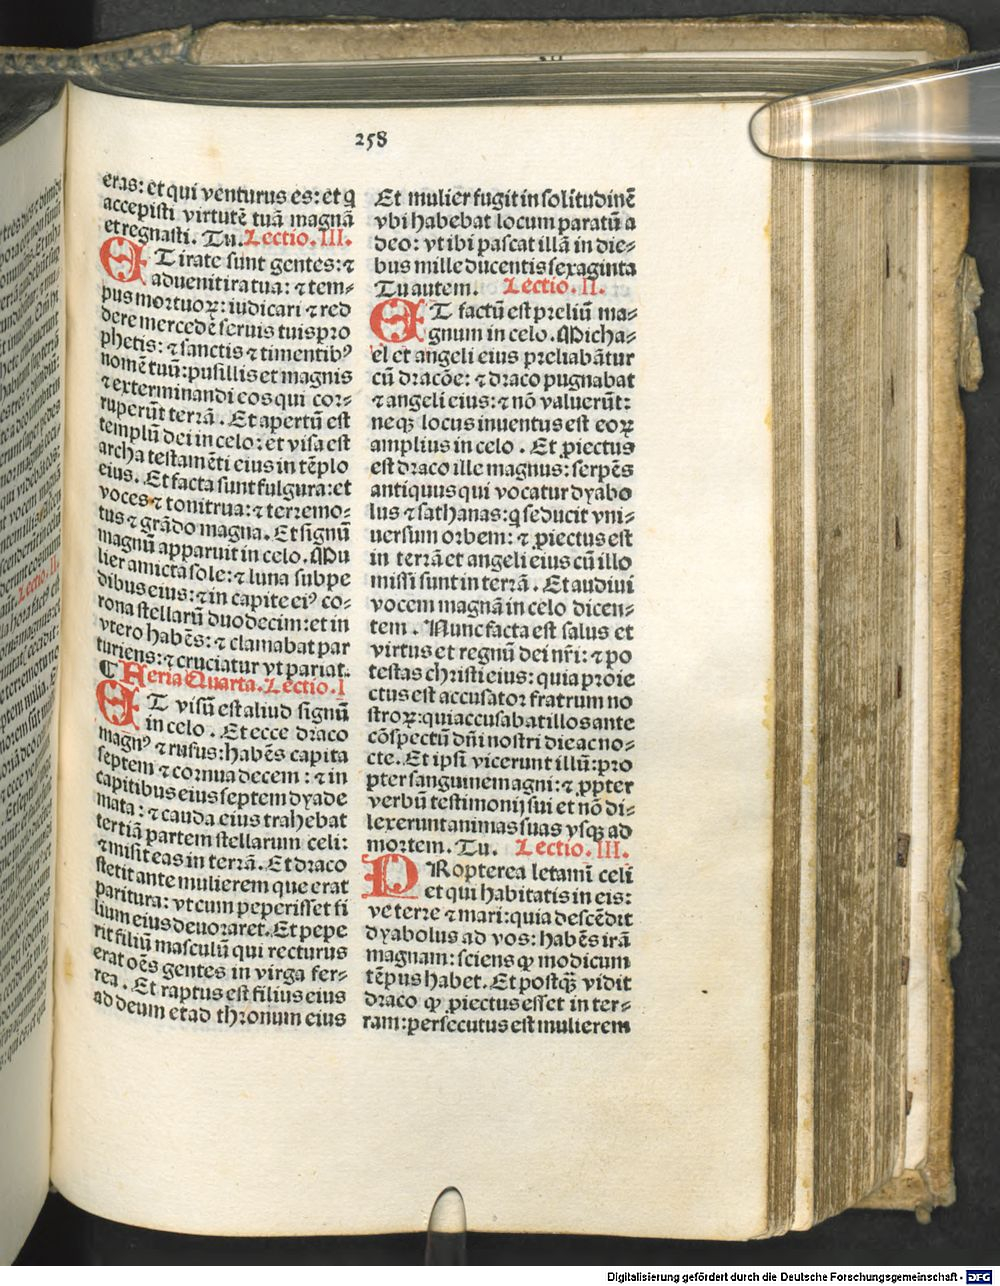 258
eras: et qui venturus es: et q
accepisti virtutē tuā magnā
et regnasti. Tu. Lectio. III.
ET irate sunt gentes: ⁊
advenit ira tua: ⁊ tem⸗
pus mortuoꝝ: iudicari ⁊ red
dere mercedē servis tuis pro
phetis: ⁊ sanctis ⁊ timentibꝰ
nomē tuū: pusillis et magnis
⁊ exterminandi eos qui cor⸗
ruperūt terrā. Et apertū est
templū dei in celo: et visa est
archa testamēti eius in tēplo
eius. Et facta sunt fulgura: et
voces ⁊ tonitrua: ⁊ terremo⸗
tus ⁊ grādo magna. Et signū
magnū apparuit in celo. Mu
lier amicta sole: ⁊ luna sub pe
dibus eius: ⁊ in capite eiꝰ co⸗
rona stellarū duodecim: et in
vtero habēs: ⁊ clamabat par
turiens: ⁊ cruciatur vt pariat.
¶ Feria Quarta. Lectio. I
ET visū est aliud signū
in celo. Et ecce draco
magnꝰ ⁊ rufus: habēs capita
septem ⁊ cornua decem: ⁊ in
capitibus eius septem dyade
mata: ⁊ cauda eius trahebat
tertiā partem stellarum celi:
⁊ misit eas in terrā. Et draco
stetit ante mulierem que erat
paritura: vt cum peperisset fi
lium eius devoraret. Et pepe
rit filiū masculū qui recturus
erat oēs gentes in virga fer⸗
rea. Et raptus est filius eius
ad deum et ad thronum eius
Et mulier fugit in solitudinē
vbi habebat locum paratū a
deo: vt ibi pascat illā in die⸗
bus mille ducentis sexaginta
Tu autem. Lectio. II.
ET factū est preliū ma⸗
gnum in celo. Micha⸗
el et angeli eius preliabātur
cū dracōe: ⁊ draco pugnabat
⁊ angeli eius: ⁊ nō valuerūt:
neqꝫ locus inuentus est eoꝝ
amplius in celo. Et ꝓiectus
est draco ille magnus: serpēs
antiquus qui vocatur dyabo
lus ⁊ sathanas: q seducit vni⸗
uersum orbem: ⁊ ꝓiectus est
in terrā et angeli eius cū illo
missi sunt in terrā. Et audivi
vocem magnā in celo dicen⸗
tem. Nunc facta est salus et
virtus et regnū dei nr̄i: ⁊ po
testas christi eius: quia proie
ctus est accusator fratrum no
stroꝝ: qui accusabat illos ante
cōspectū dn̄i nostri die ac no⸗
cte. Et ipsi vicerunt illū: pro
pter sanguinem agni: ⁊ ꝓpter
verbū testimonij sui et nō di⸗
lexerunt animas suas vsqꝫ ad
mortem. Tu. Lectio. III.
PRopterea letamī celi
et qui habitatis in eis:
ve terre ⁊ mari: quia descēdit
dyabolus ad vos: habēs irā
magnam: sciens ꝙ modicum
tēpus habet. Et postqꝫ̄ vidit
draco ꝙ ꝓiectus esset in ter⸗
ram: persecutus est mulierem
Digitalisierung gefördert durch die Deutsche Forschungsgemeinschaft - DFG